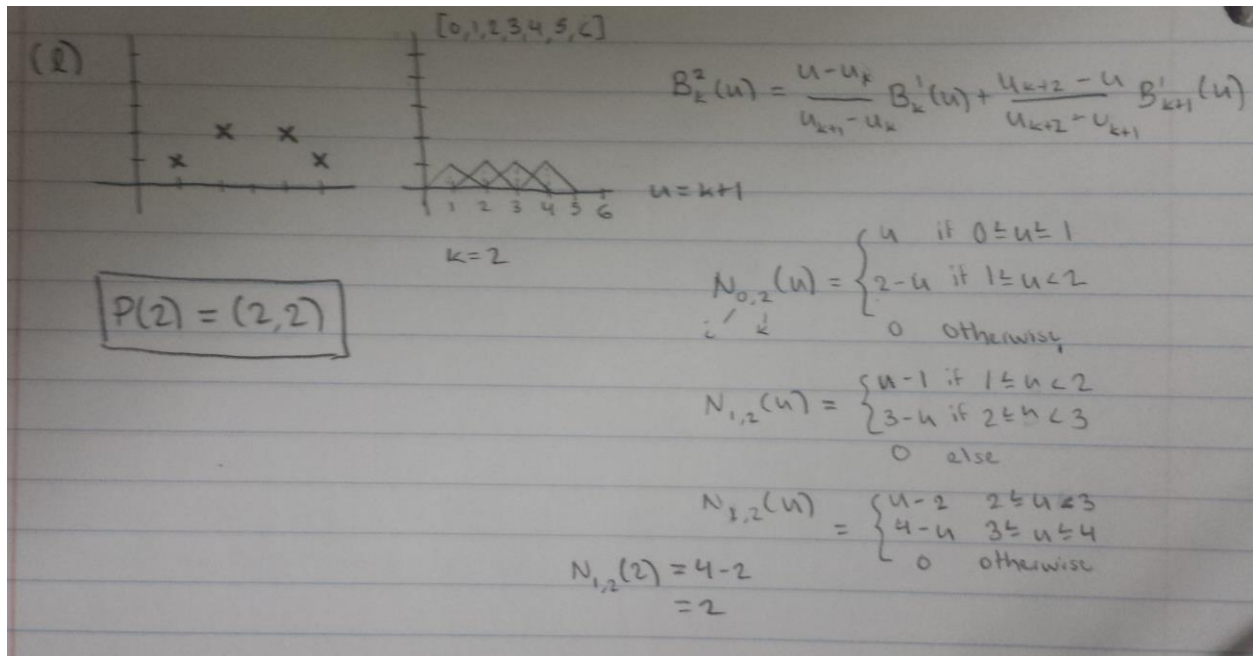 (l)
[0,1,2,3,4,5,6]
B_k^2(u) = \frac{u-u_k}{u_{k+1}-u_k} B_k^1(u) + \frac{u_{k+2}-u}{u_{k+2}-u_{k+1}} B_{k+1}^1(u)
1 2 3 4 5 6
u = k+1
k=2
P(2) = (2,2)
N_{0,2}(u) = { u if 0≤u≤1
2-u if 1≤u<2
0 otherwise
i k
N_{1,2}(u) = { u-1 if 1≤u<2
3-u if 2≤u<3
0 else
N_{2,2}(u) = { u-2 2≤u≤3
4-u 3≤u≤4
0 otherwise
N_{1,2}(2) = 4-2
=2